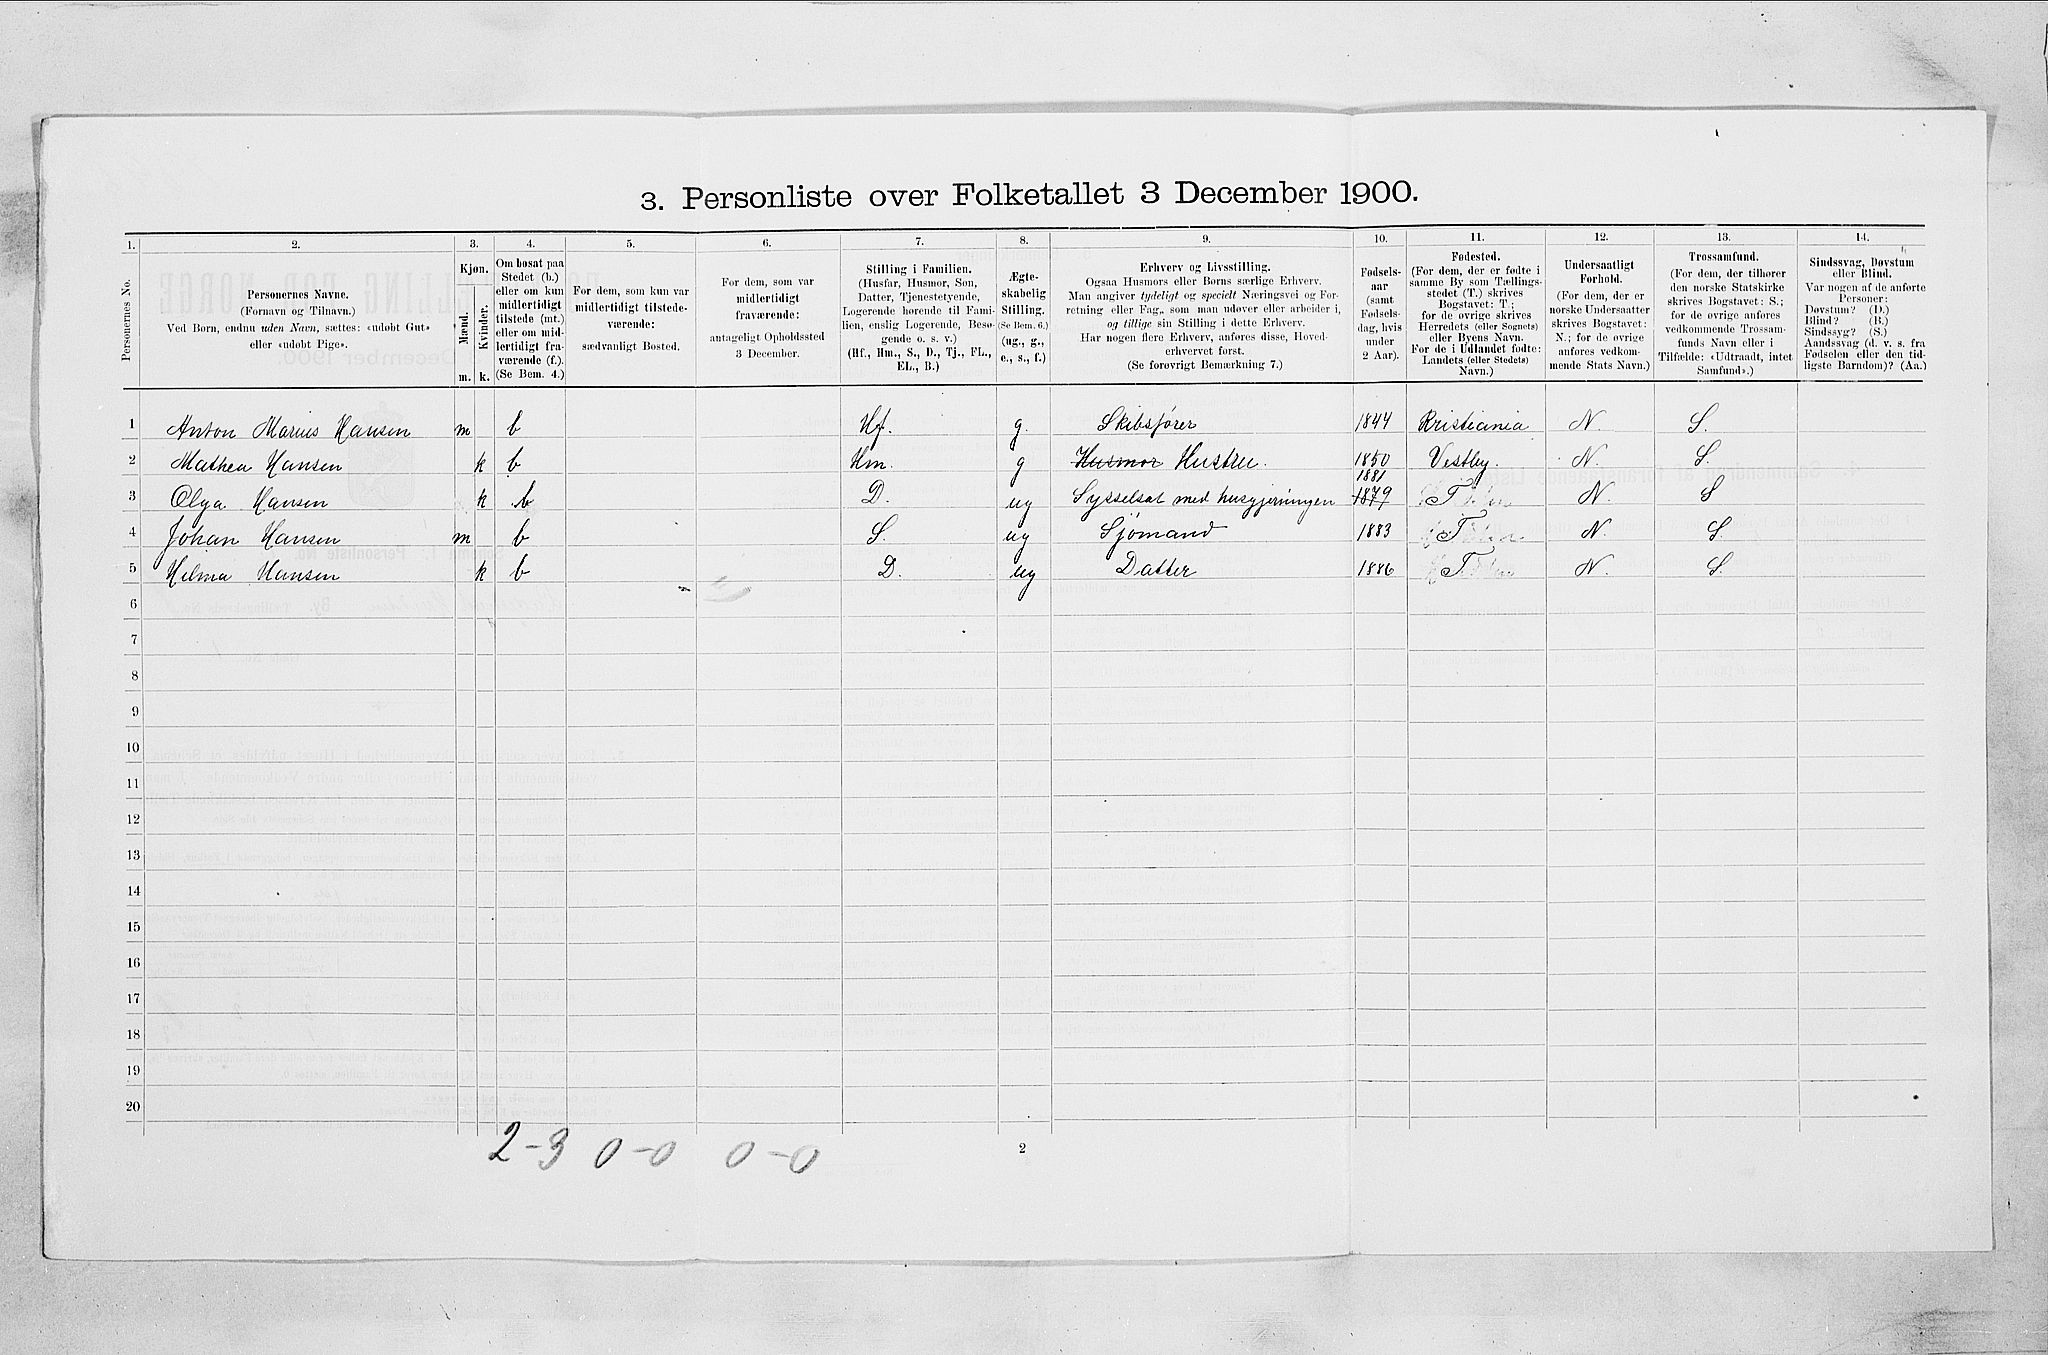 3. Personliste over Folketallet 3 December 1900.
1. 2. 3. 4. 5. 6. 7. 8. 9. 10. 11. 12. 13. 14.
Personernes No.
Personernes Navne.
(Fornavn og Tilnavn.)
Ved Børn, endnu uden Navn, sættes: «udøbt Gut»
eller «udøbt Pige».
Kjøn.
Mænd.
Kvinder.
m. k.
Om bosat paa
Stedet (b.)
eller om kun
midlertidigt
tilstede (mt.)
eller om mid-
lertidigt fra-
værende (f.).
(Se Bem. 4.)
For dem, som kun var
midlertidigt tilstede-
værende:
sædvanligt Bosted.
For dem, som var
midlertidigt
fraværende:
antageligt Opholdssted
3 December.
Stilling i Familien.
(Husfar, Husmor, Søn,
Datter, Tjenestetyende,
Logerende hørende til Fami-
lien, enslig Logerende, Besø-
gende o. s. v.)
(Hf., Hm., S., D., Tj., FL.,
EL., B.)
Ægte-
skabelig
Stilling.
(Se Bem. 6.)
(ug., g.,
e., s., f.)
Erhverv og Livsstilling.
Ogsaa Husmors eller Børns særlige Erhverv.
Man angiver tydeligt og specielt Næringsvei og For-
retning eller Fag, som man udøver eller arbeider i,
og tillige sin Stilling i dette Erhverv.
Har nogen flere Erhverv, anføres disse, Hoved-
erhvervet først.
(Se forøvrigt Bemærkning 7.)
Fødsels-
aar
(samt
Fødsels-
dag, hvis
under
2 Aar).
Fødested.
(For dem, der er fødte i
samme By som Tællings-
stedet (T.) skrives
Bogstavet: T.;
for de øvrige skrives
Herredets (eller Sognets)
eller Byens Navn.
For de i Udlandet fødte:
Landets (eller Stedets)
Navn.)
Undersaatligt
Forhold.
(For dem, der er
norske Undersaatter
skrives Bogstavet:
N.; for de øvrige
anføres vedkom-
mende Stats Navn.)
Trossamfund.
(For dem, der tilhører
den norske Statskirke
skrives Bogstavet: S.;
for de øvrige anføres
vedkommende Trossam-
funds Navn eller i
Tilfælde: «Udtraadt, intet
Samfund».)
Sindssvag, Døvstum
eller Blind.
Var nogen af de anførte
Personer:
Døvstum? (D.)
Blind? (B.)
Sindssyg? (S.)
Aandssvag (d. v. s. fra
Fødselen eller den tid-
ligste Barndom)? (Aa.)
1 Anton Marius Hansen m b Hf. g. Skibsfører 1844 Kristiania N. S.
2 Mathea Hansen k b Hm. g Husmor Hustru. 1850 Vestby. N. S.
1881
3 Olga Hansen k b D. ug Sysselsat med husgjerningen 1879 T N. S
4 Johan Hansen m b S. ug Sjømand 1883 T N. S.
5 Helma Hansen k b D. ug Datter 1886 T N. S.
6
7
8
9
10
11
12
13
14
15
16
17
18
19
20
2-3 0-0 0-0
2